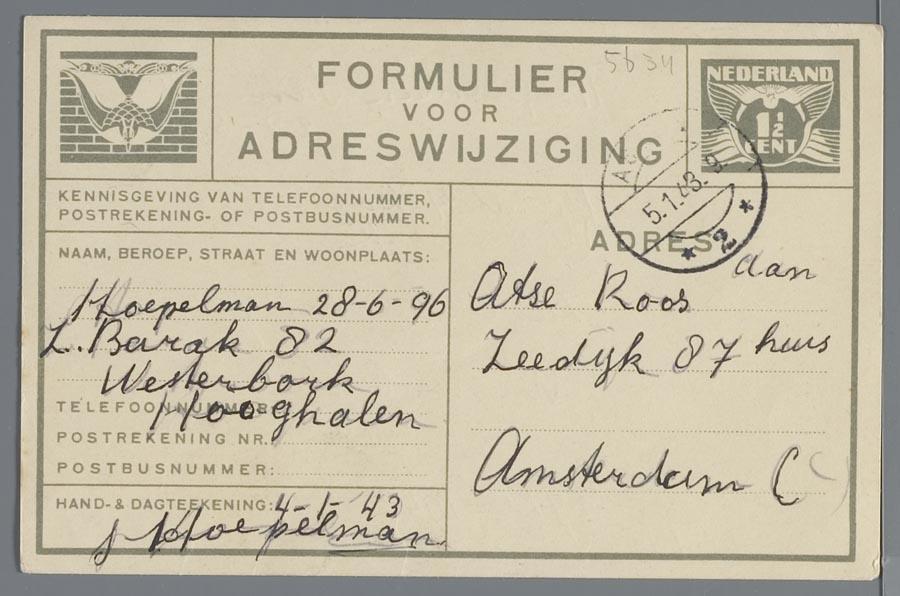 5634
FORMULIER
VOOR
ADRESWIJZIGING
NEDERLAND
1½
CENT
5.1.43. 9
2
KENNISGEVING VAN TELEFOONNUMMER,
POSTREKENING- OF POSTBUSNUMMER.
NAAM, BEROEP, STRAAT EN WOONPLAATS:
Hoepelman 28-6-96
L. Barak 82
Westerbork
Hooghalen
TELEFOONNUMMER:
POSTREKENING NR.
POSTBUSNUMMER:
HAND- & DAGTEEKENING: 4-1-43
Hoepelman
ADRES
aan
Atse Roos
Zeedijk 87 huis
Amsterdam C